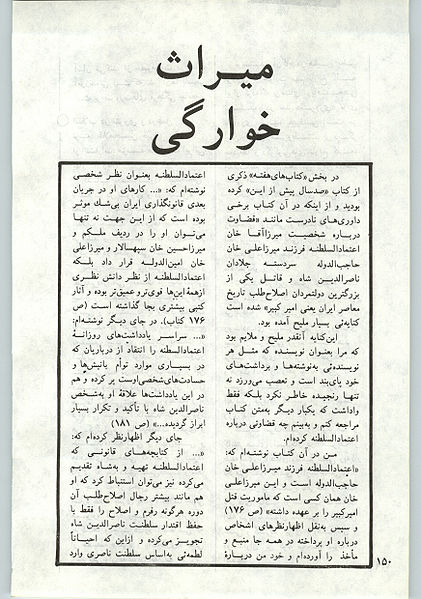 میراث
خوارگی
در بخش «کتاب‌های هفته» ذکری
از کتاب «صدسال پیش از این» کرده
بودید و از اینکه در آن کتاب برخی
داوری‌های نادرست مانند «قضاوت
درباره شخصیت میرزاآقا خان
اعتمادالسلطنه فرزند میرزاعلی خان
حاجب‌الدوله سردسته جلادان
ناصرالدین شاه و قاتل یکی از
بزرگترین دولتمردان اصلاح‌طلب تاریخ
معاصر ایران یعنی امیر کبیر» شده است
کنایه‌ئی بسیار ملیح آمده بود.
این‌کنایه آنقدر ملیح و ملایم بود
که مرا بعنوان نویسنده که مثل هر
نویسنده‌ئی به‌نوشته‌ها و برداشت‌های
خود پای‌بند است و تعصب می‌ورزد نه
تنها رنجیده خاطر نکرد بلکه فقط
واداشت که یکبار دیگر به‌متن کتاب
مراجعه کنم و به‌بینم چه قضاوتی درباره
اعتمادالسلطنه کرده‌ام.
من در آن کتاب نوشته‌ام که:
«اعتمادالسلطنه فرزند میرزاعلی خان
حاجب‌الدوله است و این میرزاعلی
خان همان کسی است که ماموریت قتل
امیرکبیر را بر عهده داشته» (ص ۱۷۶)
و سپس به‌نقل اظهارنظرهای اشخاص
درباره او پرداخته در همه جا منبع و
مأخذ را آورده‌ام و خود من درباره
اعتمادالسلطنه بعنوان نظر شخصی
نوشته‌ام که: «... کارهای او در جریان
بعدی قانونگذاری ایران بی‌شک موثر
بوده است که از این جهت نه تنها
می‌توان او را در ردیف ملکم و
میرزاحسین خان سپهسالار و میرزاعلی
خان امین‌الدوله قرار داد بلکه
اعتمادالسلطنه از نظر دانش نظری
ازهمهٔ این‌ها قوی‌تر و عمیق‌تر بوده و آثار
کتبی بیشتری بجا گذاشته است» (ص
۱۷۶ کتاب). در جای دیگر نوشته‌ام:
«... سراسر یادداشت‌های روزانهٔ
اعتمادالسلطنه را انتقاد از درباریان که
در بسیاری موارد توأم بانیش‌ها و
حسادت‌های شخصی‌اوست پر کرده و هم
در این یادداشت‌ها علاقهٔ او به‌شخص
ناصرالدین شاه با تأکید و تکرار بسیار
ابراز گردیده...» (ص ۱۸۱)
جای دیگر اظهارنظر کرده‌ام که:
«... از کتابچه‌های قانونی که
اعتمادالسلطنه تهیه و به‌شاه تقدیم
می‌کرده نیز می‌توان استنباط کرد که او
هم مانند بیشتر رجال اصلاح‌طلب آن
دوره هرگونه رفرم و اصلاح را فقط با
حفظ اقتدار سلطنت ناصرالدین شاه
تجویز می‌کرده و ازاین که احیاناً
لطمه‌ئی به‌اساس سلطنت ناصری وارد
۱۵۰